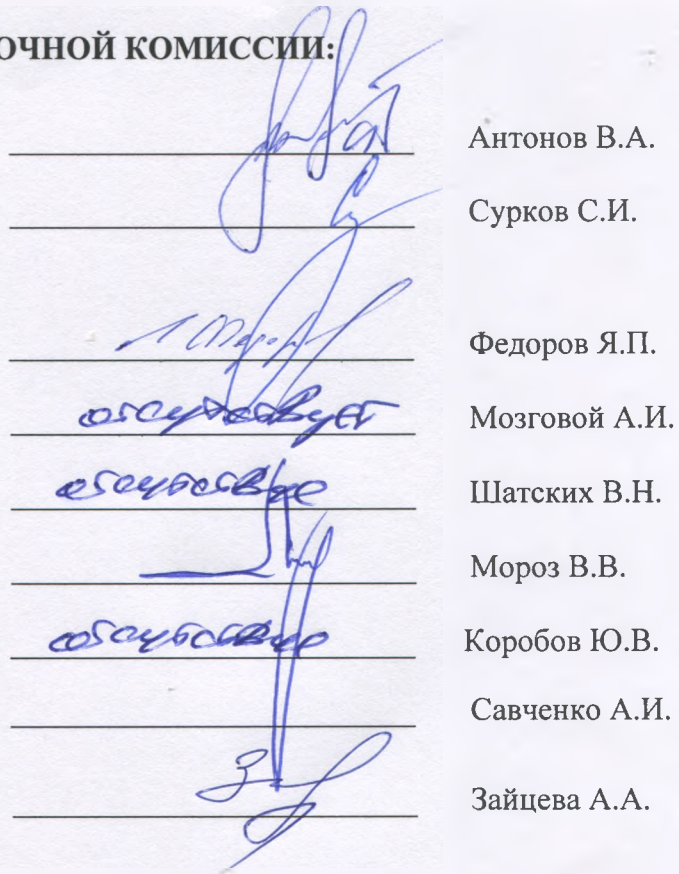 ОЧНОЙ КОМИССИИ:
Антонов В.А.
Сурков С.И.
Федоров Я.П.
отсутствует Мозговой А.И.
отсутствие Шатских В.Н.
Мороз В.В.
отсутствие Коробов Ю.В.
Савченко А.И.
Зайцева А.А.